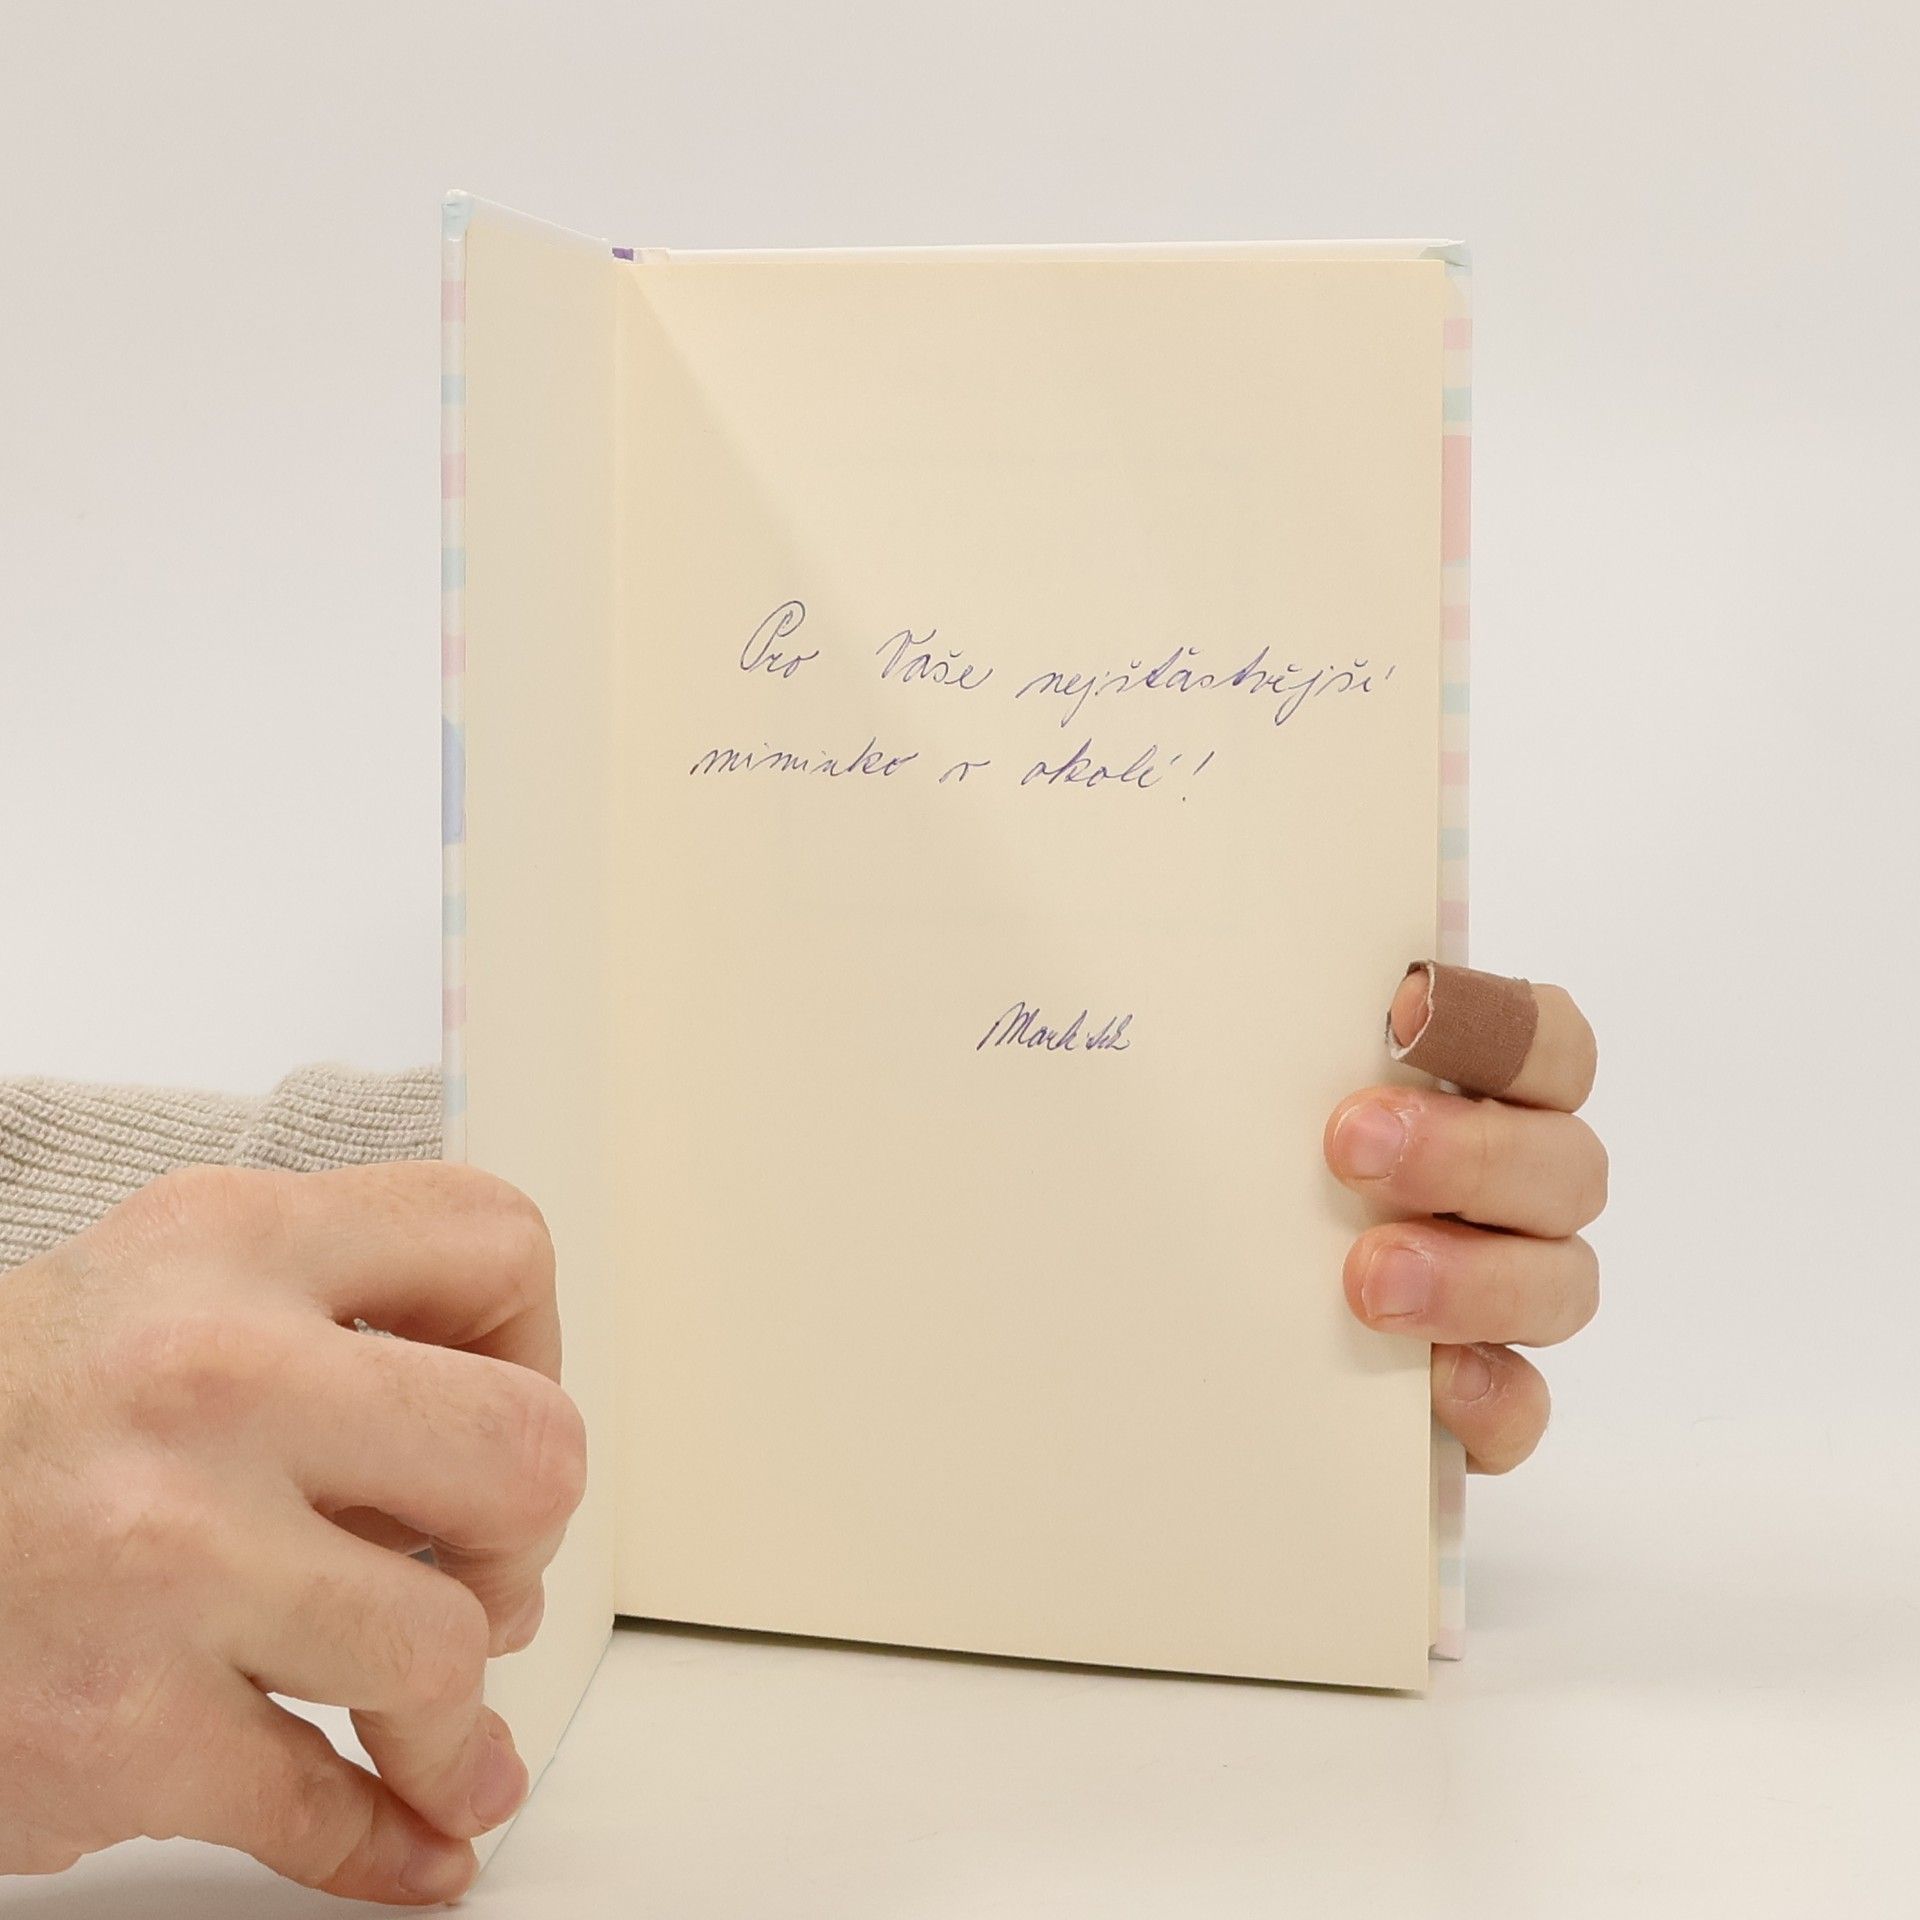 Pro Vaše nejšťastnější
miminko v okolí!